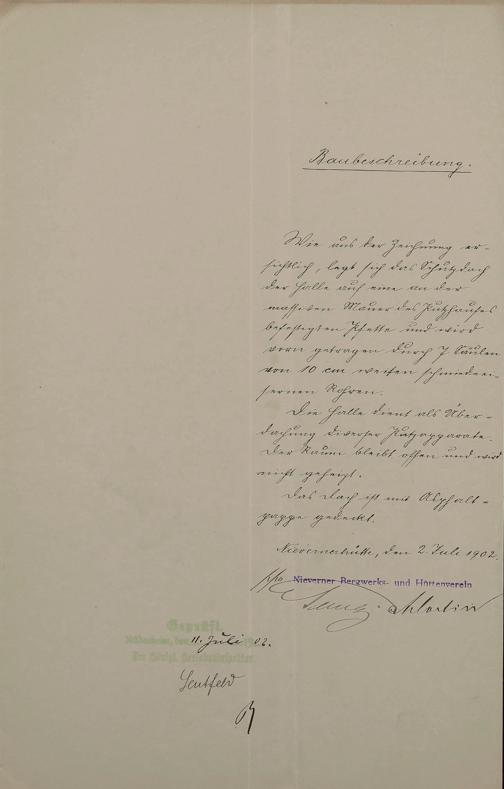 Baubeschreibung.
Wie aus der Zeichnung er-
sichtlich, legt sich das Schutzdach
der Halle auf eine an der
massiven Mauer des Putzhauses
befestigten Pfette und wird
vorn getragen durch 7 Säulen
von 10 cm weiten schmiedeei-
sernen Rohren.
Die Halle dient als Über-
dachung diverser Putzapparate.
Der Raum bleibt offen und wird
nicht geheizt.
Das Dach ist mit Asphalt-
pappe gedeckt.
Nievernerhütte, den 2. Juli 1902.
ppa Nieverner Bergwerks- und Hüttenverein
Martin
Geprüft.
den 11. Juli 1902.
Der Königl.